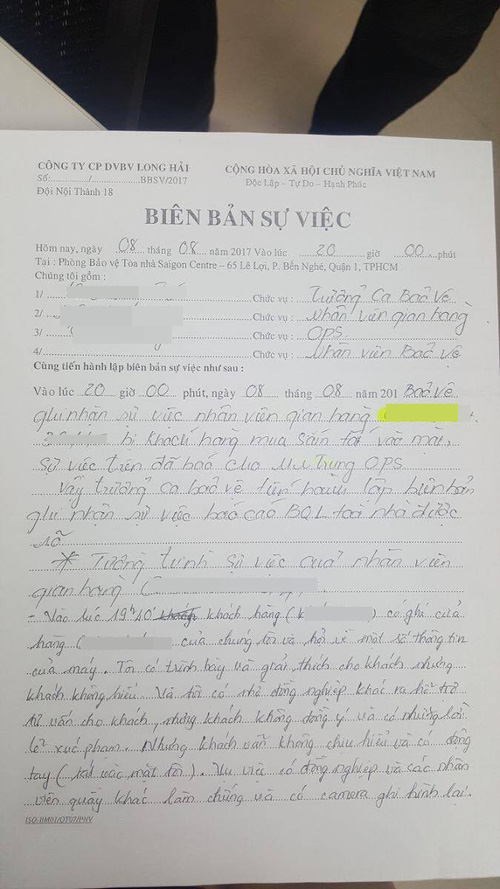 CÔNG TY CP DVBV LONG HẢI
Số:............/.....................BBSV/2017
Đội Nội Thành 18
CỘNG HÒA XÃ HỘI CHỦ NGHĨA VIỆT NAM
Độc Lập – Tự Do – Hạnh Phúc
BIÊN BẢN SỰ VIỆC
Hôm nay, ngày 08 tháng 08 năm 2017 Vào lúc 20 giờ 00 phút
Tại : Phòng Bảo vệ Tòa nhà Saigon Centre – 65 Lê Lợi, P. Bến Nghé, Quận 1, TPHCM
Chúng tôi gồm :
1/ Chức vụ : Trưởng Ca Bảo Vệ
2/ Chức vụ : Nhân viên gian hàng
3/ Chức vụ : OPS
4/ Chức vụ : Nhân viên Bảo vệ
Cùng tiến hành lập biên bản sự việc như sau :
Vào lúc 20 giờ 00 phút, ngày 08 tháng 08 năm 201 Bảo vệ
ghi nhận sự việc nhân viên gian hàng
bị khách hàng mua sắm tát vào mặt,
sự việc trên đã báo cho Mr. Trung OPS.
Vậy trưởng ca bảo vệ tiến hành lập biên bản
ghi nhận sự việc báo cáo BQL toà nhà được
rõ
* Tường trình sự việc của nhân viên
gian hàng
- Vào lúc 19h40 khách khách hàng (k ) có ghé cửa
hàng ( của chúng tôi và hỏi về một số thông tin
của máy. Tôi có trình bày và giải thích cho khách nhưng
khách không hiểu. Và tôi có nhờ đồng nghiệp khác ra hỗ trợ
tư vấn cho khách, nhưng khách không đồng ý và có những lời
lẽ xúc phạm. Nhưng khách vẫn không chịu hiểu và có động
tay (tát vào mặt tôi). Vụ việc có đồng nghiệp và các nhân
viên quầy khác làm chứng và có camera ghi hình lại.
ISO-BM01/QT07/PNV